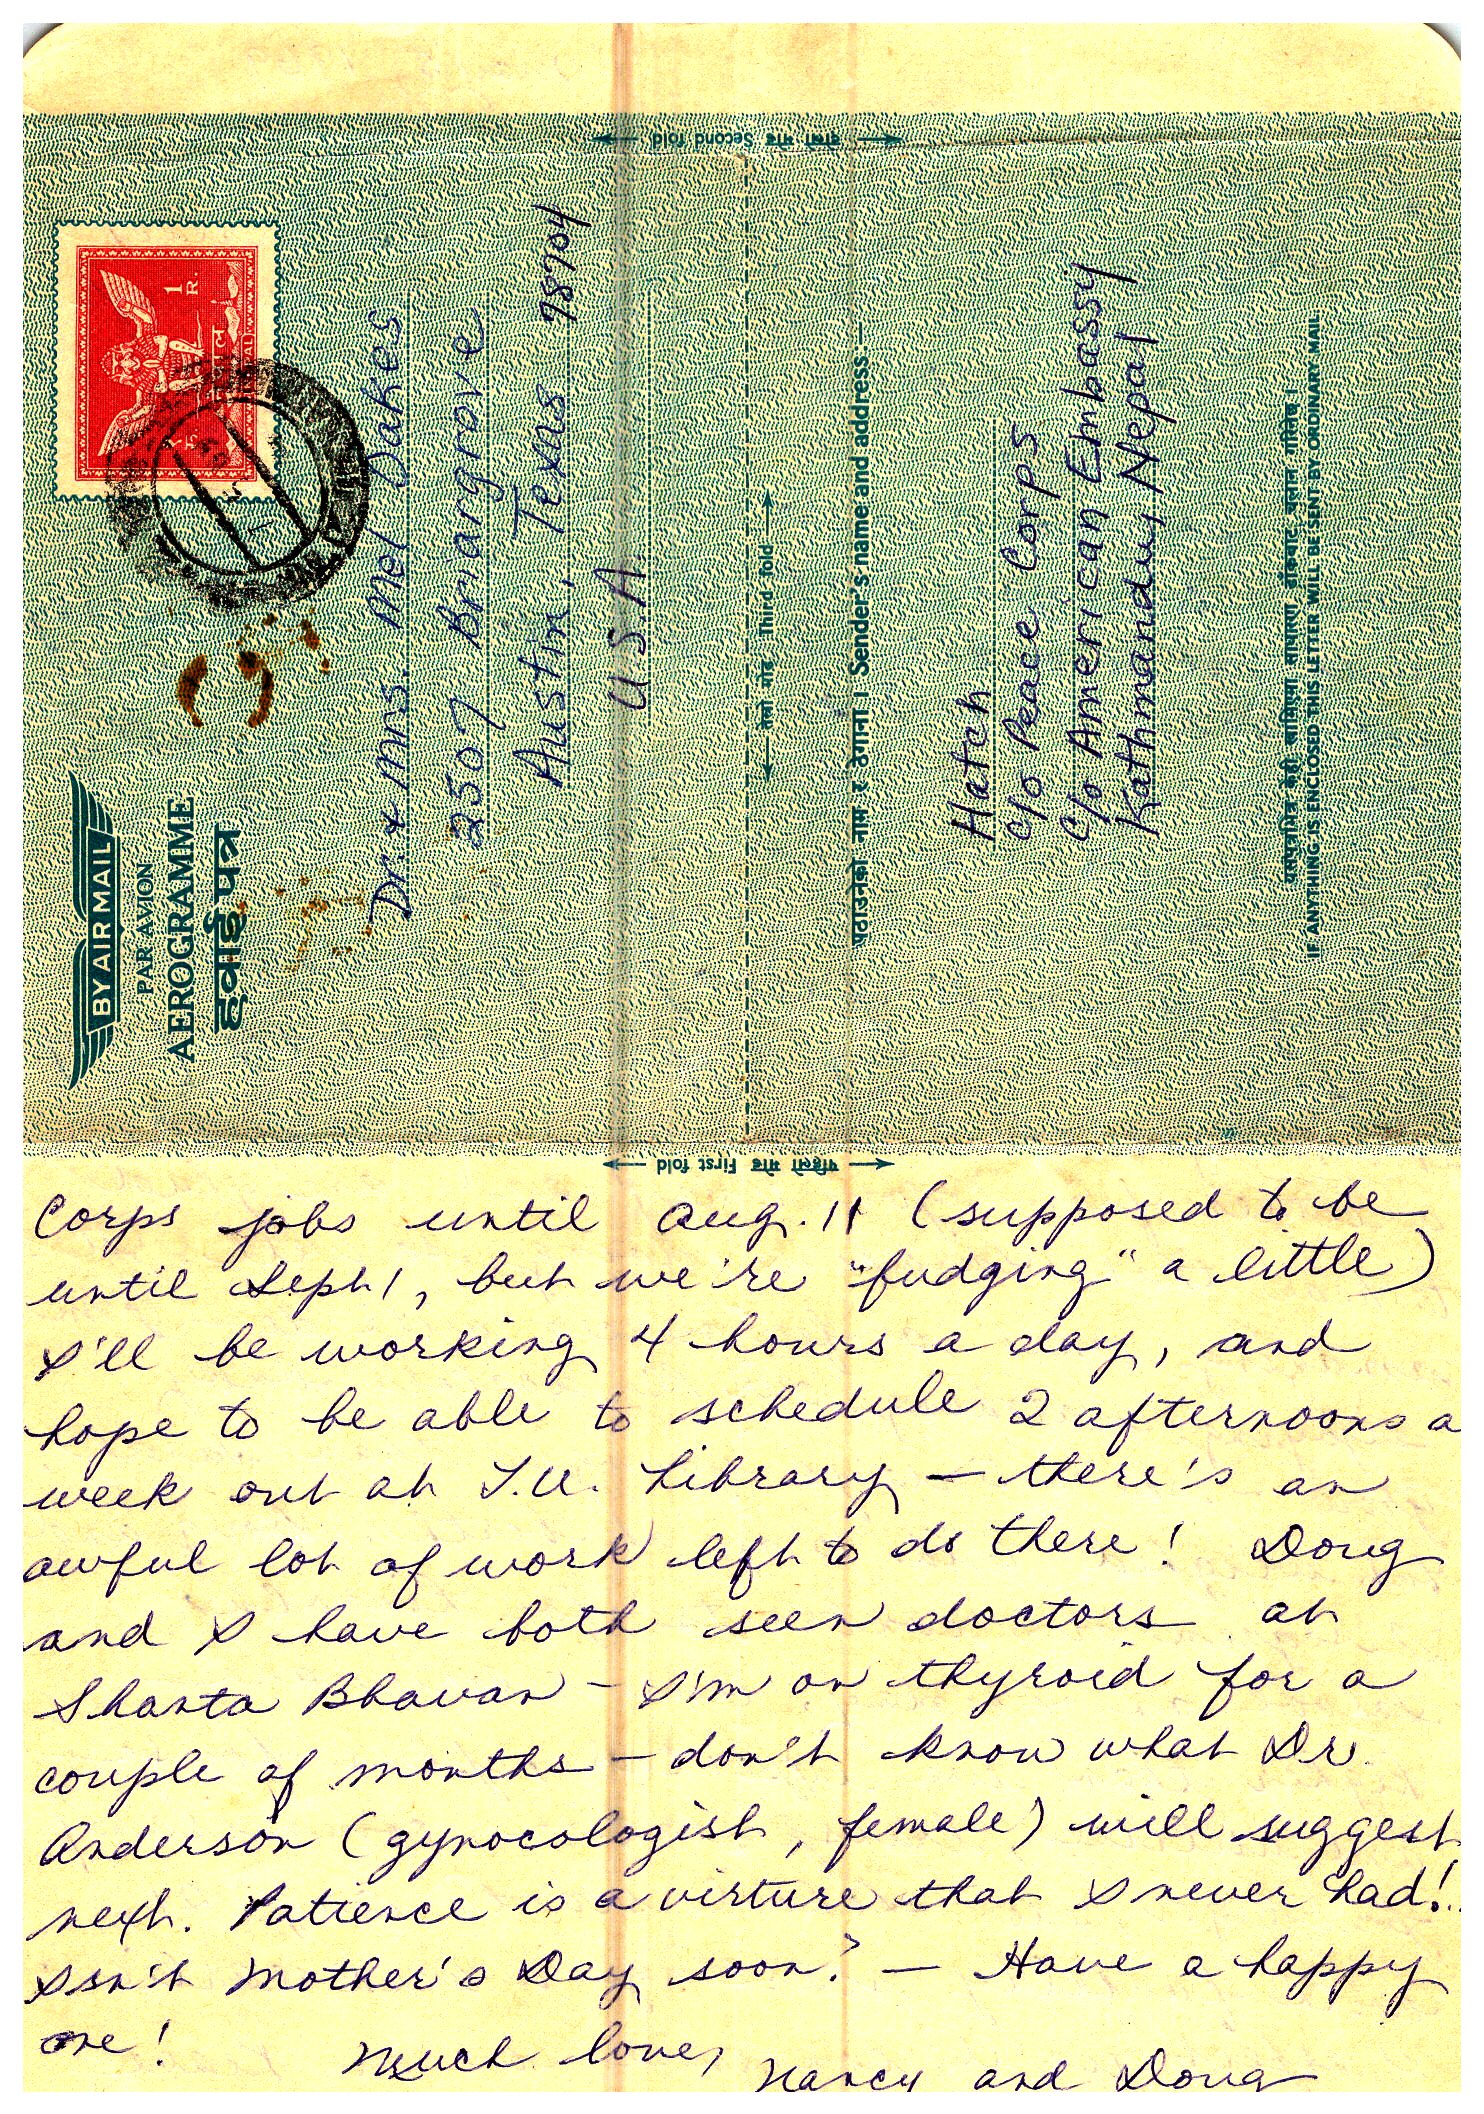 दोस्रो मोड Second fold
1
R.
नेपाल
BY AIR MAIL
PAR AVION
AEROGRAMME
हवाईपत्र
Dr. & Mrs. Mel Oakes
2507 Briargrove
Austin, Texas 78704
U.S.A.
तेस्रो मोड Third fold
पठाउनेको नाम र ठेगाना । Sender's name and address:—
Hatch
c/o Peace Corps
c/o American Embassy
Kathmandu, Nepal
यसपत्रभित्र केही साधारण डाँकबाट चलान गरिनेछ ।
IF ANYTHING IS ENCLOSED THIS LETTER WILL BE SENT BY ORDINARY MAIL
पहिलो मोड First fold
Corps jobs until Aug. 11 (supposed to be
until Sept 1, but we're "fudging" a little)
I'll be working 4 hours a day, and
hope to be able to schedule 2 afternoons a
week out at T.U. Library — there's an
awful lot of work left to do there! Doug
and I have both seen doctors at
Shanta Bhavan – I'm on thyroid for a
couple of months – don't know what Dr.
Anderson (gynocologist, female) will suggest
next. Patience is a virture that I never had!..
Isn't Mother's Day soon? — Have a happy
one!
Much love,
Nancy and Doug